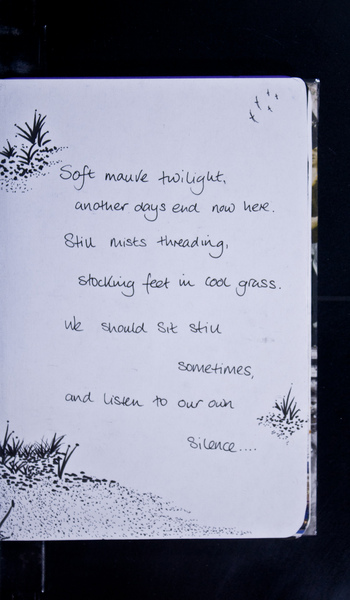 Soft mauve twilight,
another days end now here.
Still mists threading,
stocking feet in cool grass.
We should sit still
sometimes,
and listen to our own
silence....